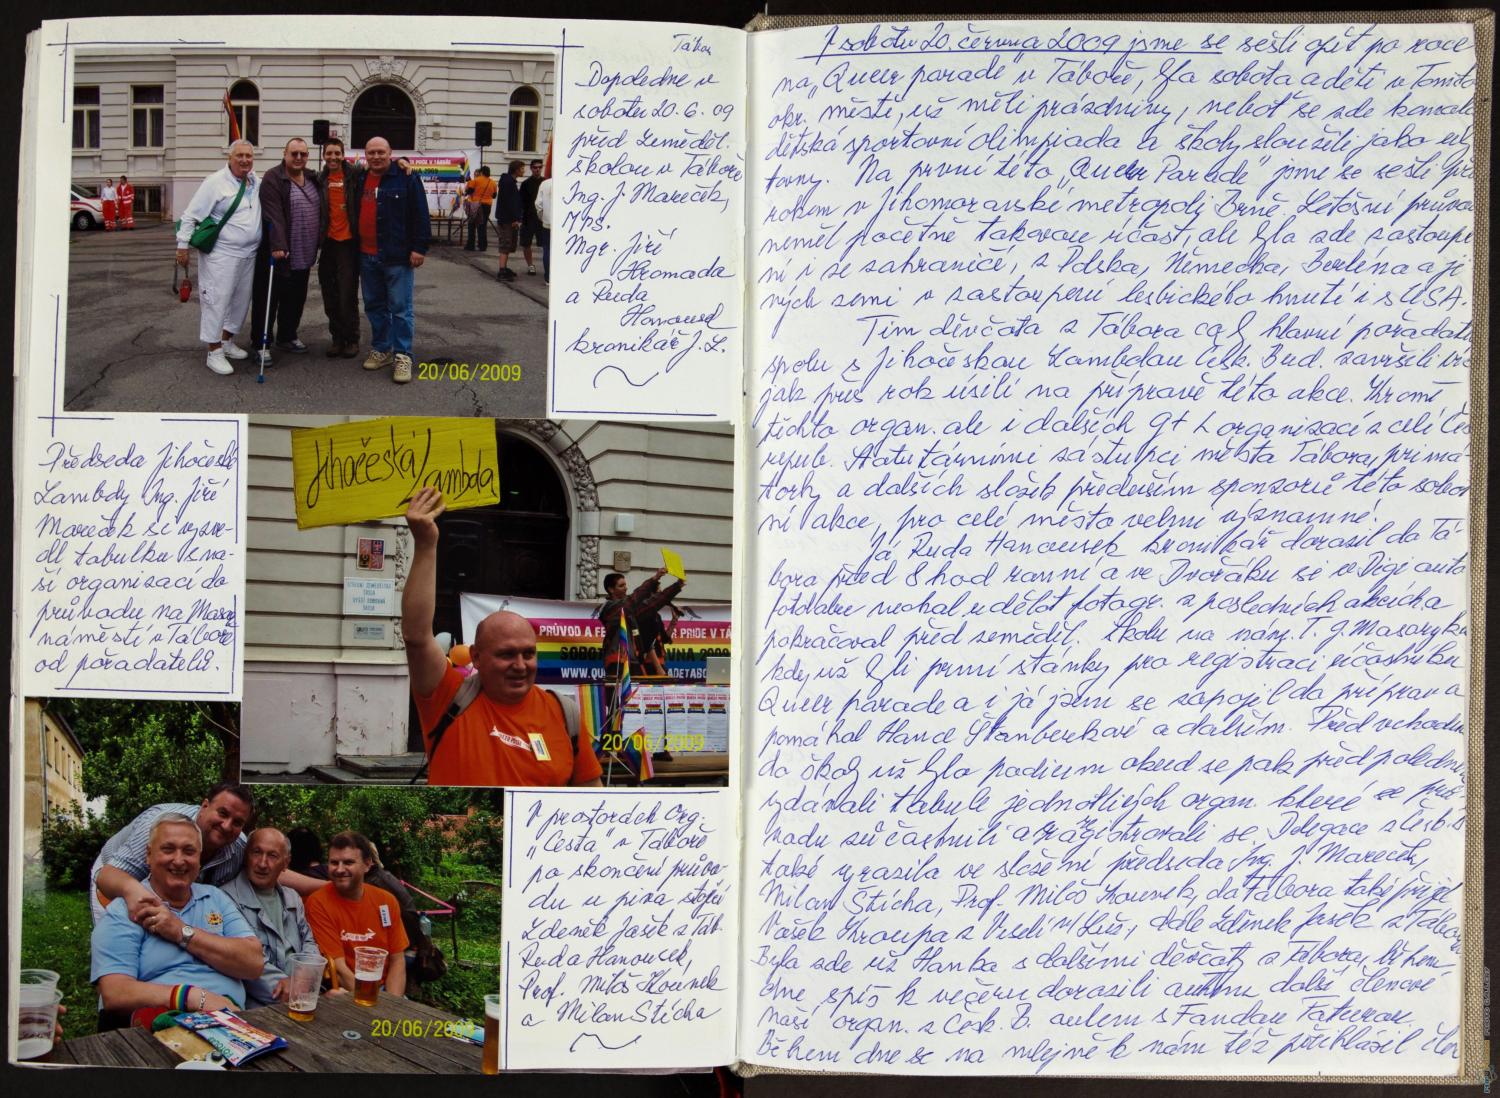 Tábor
Dopoledne v
sobotu 20.6.09
před Zeměděl.
školou v Táboře
Ing. J. Mareček,
Mgr. Jiří
Hromada
a Ruda
Hanousek
kronikář J. L.
20/06/2009
Předseda Jihočeské
Lambdy Ing. Jiří
Mareček si vyzve-
dl tabulku s na-
ší organizací do
průvodu na Masar.
náměstí v Táboře
od pořadatelů.
Jihočeská
Lambda
STŘEDNÍ ZEMĚDĚLSKÁ
ŠKOLA
PRŮVOD A FE PRIDE V TÁ
SOBOT VNA 2009
WWW.QU ADETABO
20/06/2009
V prostorách Org.
"Cesta" v Táboře
po skončení průvo-
du u piva stojící
Zdeněk Jašek z Táb.
Ruda Hanousek,
Prof. Miloš Kounek
a Milan Štícha
20/06/2009
V sobotu 20. června 2009 jsme se sešli opět po roce
na "Queer parade" v Táboře, byla sobota a děti v Tomto
okr. městě, už měli prázdniny, neboť se zde konala
dětská sportovní olimpiada a školy sloužili jako uby
tovny. Na první této "Queer Parade" jsme se sešli před
rokem v Jihomoravské metropoli Brně. Letošní průvod
neměl početně takovou účast, ale byla zde zastoupe
ní i ze zahraničí, z Polska, Německa, Berlína a ji
ných zemí v zastoupení lesbického hnutí i s USA.
Tím děvčata z Tábora coby hlavní pořadatel
spolu s Jihočeskou Lambdou Česk. Bud. završili více
jak přes rok úsilí na přípravě této akce. Kromě
těchto organ. ale i dalších G + L organizací z celé Če
repub. Statutárními zástupci města Tábora, prima-
torky a dalších složek především sponzorů této sobot
ní akce, pro celé město velmi významné.
Já, Ruda Hanousek kronikář dorazil do Tá-
bora před 8 hod ranní a ve Dvořáku si v Digi auto
fotolabu nechal udělat fotogr. z posledních akcích a
pokračoval před zeměděl. školu na nám. T. G. Masaryka
kdy už byli první stánky pro registraci účastníků
Queer parade a i já jsem se zapojil do příprav a
pomáhal Hance Štanberkové a dalším. Před vchodem
do školy už bylo podium okud se pak před polednem
vydávali tabule jednotlivých organ. které se prů
vodu zúčastnili a registrovali se. Delegace z Česk. B.
také vyrazila ve složení předseda Ing. J. Mareček,
Milan Štícha, Prof. Miloš Kounek, do Tábora také přijel
Vašek Kroupa z Veselí n/Luž., dále Zdeněk Jašek z Tábora
Byla zde už Hanka s dalšími děvčaty z Tábora, během
dne spíš k večeru dorazili autem další členové
naší organ. z Česk. B. autem s Fandou
Během dne se na mlejně k nám též přihlásil člen